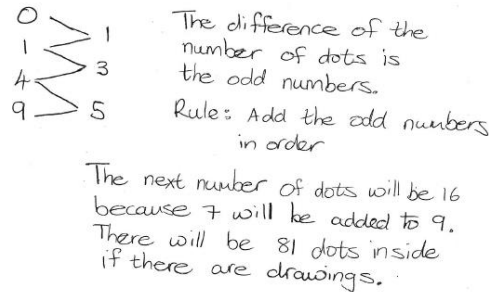 0
1
4
9
1
3
5
The difference of the
number of dots is
the odd numbers.
Rule: Add the odd numbers
in order
The next number of dots will be 16
because 7 will be added to 9.
There will be 81 dots inside
if there are drawings.